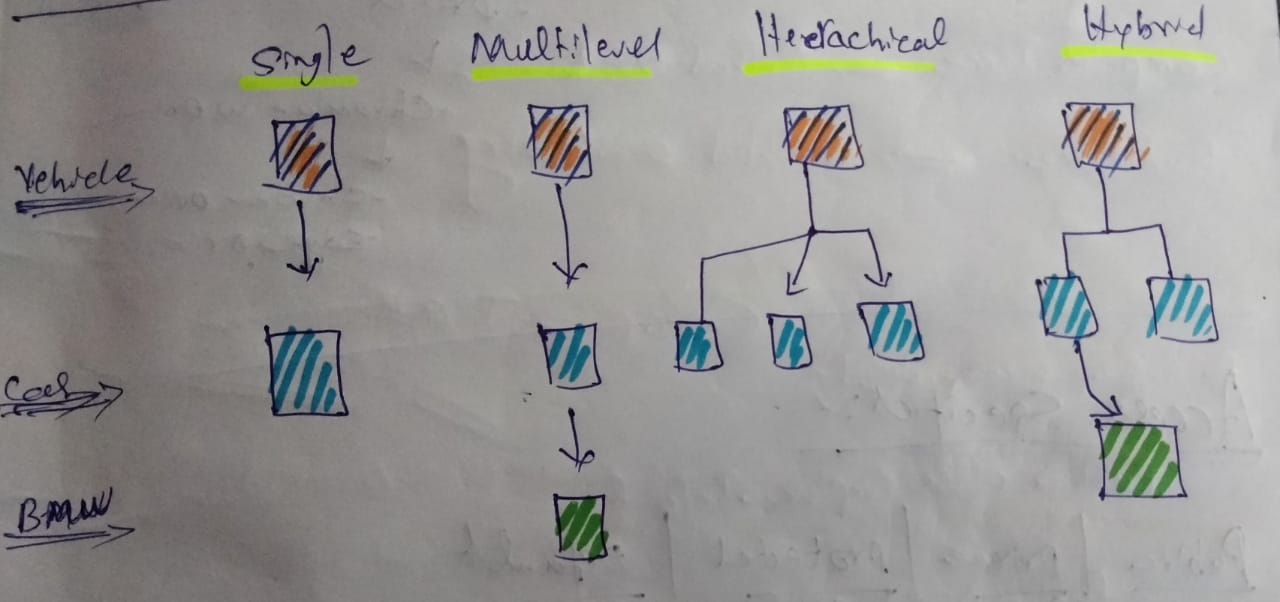 Single
Multilevel
Hierachical
Hybrid
Vehicle
Car
BMW